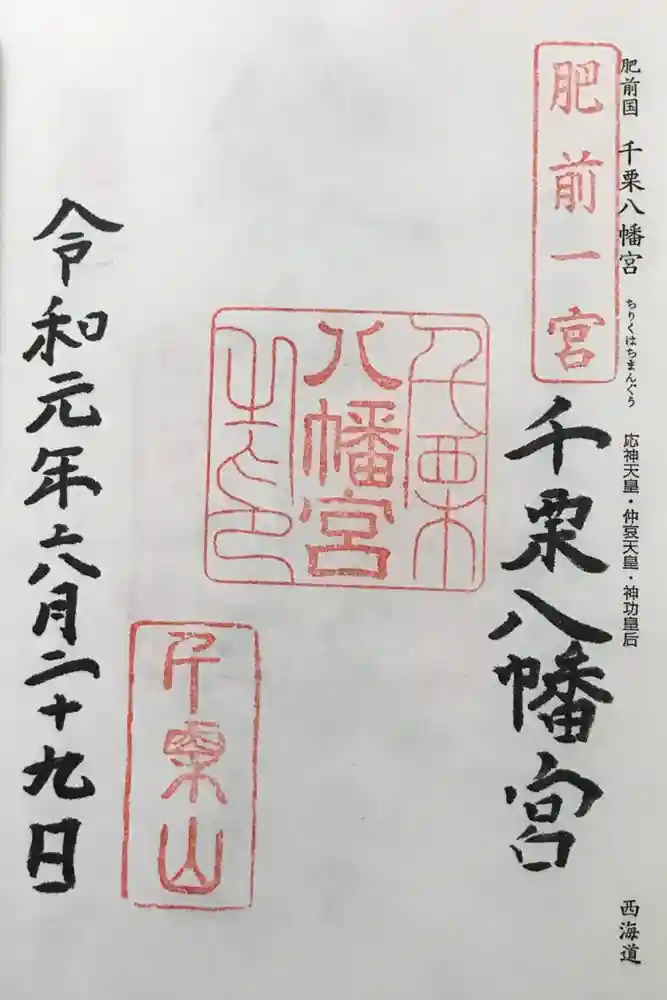 肥前国 千栗八幡宮 ちりくはちまんぐう 応神天皇・仲哀天皇・神功皇后 西海道
肥前一宮
千栗八幡宮
千栗
八幡宮
之印
千栗山
令和元年六月二十九日